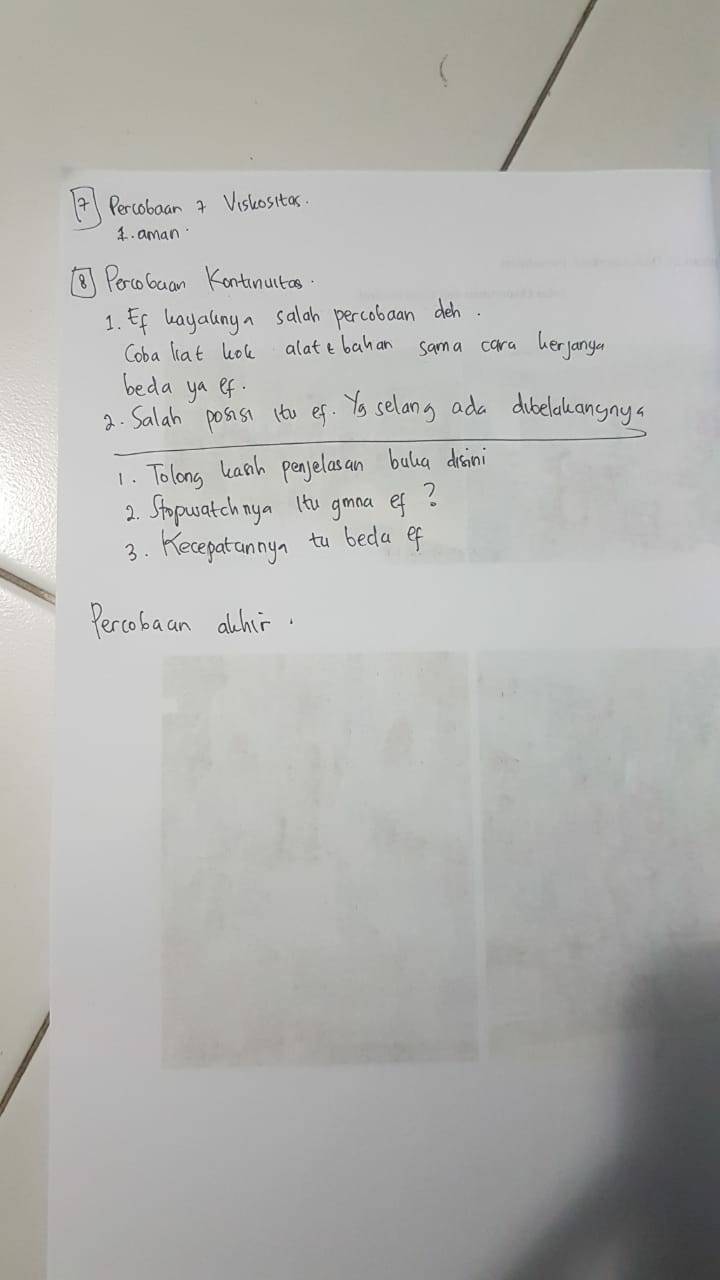 7 Percobaan 7 Viskositas.
1. aman.
8 Percobaan Kontinuitas.
1. Ef kayaknya salah percobaan deh.
Coba liat kok alat & bahan sama cara kerjanya
beda ya ef.
2. Salah posisi itu ef. Yg selang ada dibelakangnya
1. Tolong kasih penjelasan buka disini
2. Stopwatchnya itu gmna ef?
3. Kecepatannya tu beda ef
Percobaan akhir.